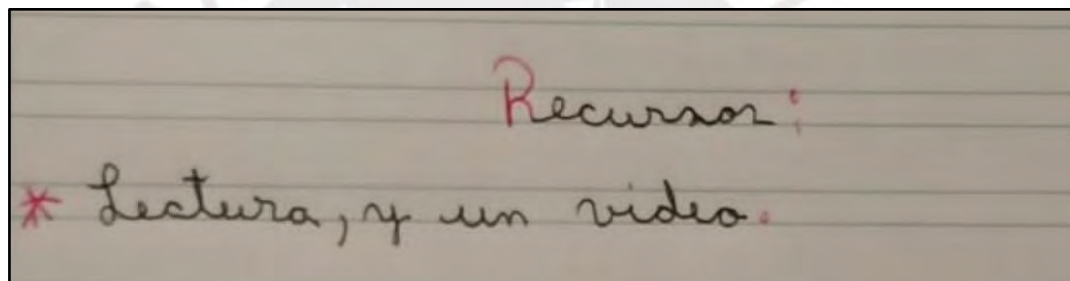 Recursos:
* Lectura, y un video.